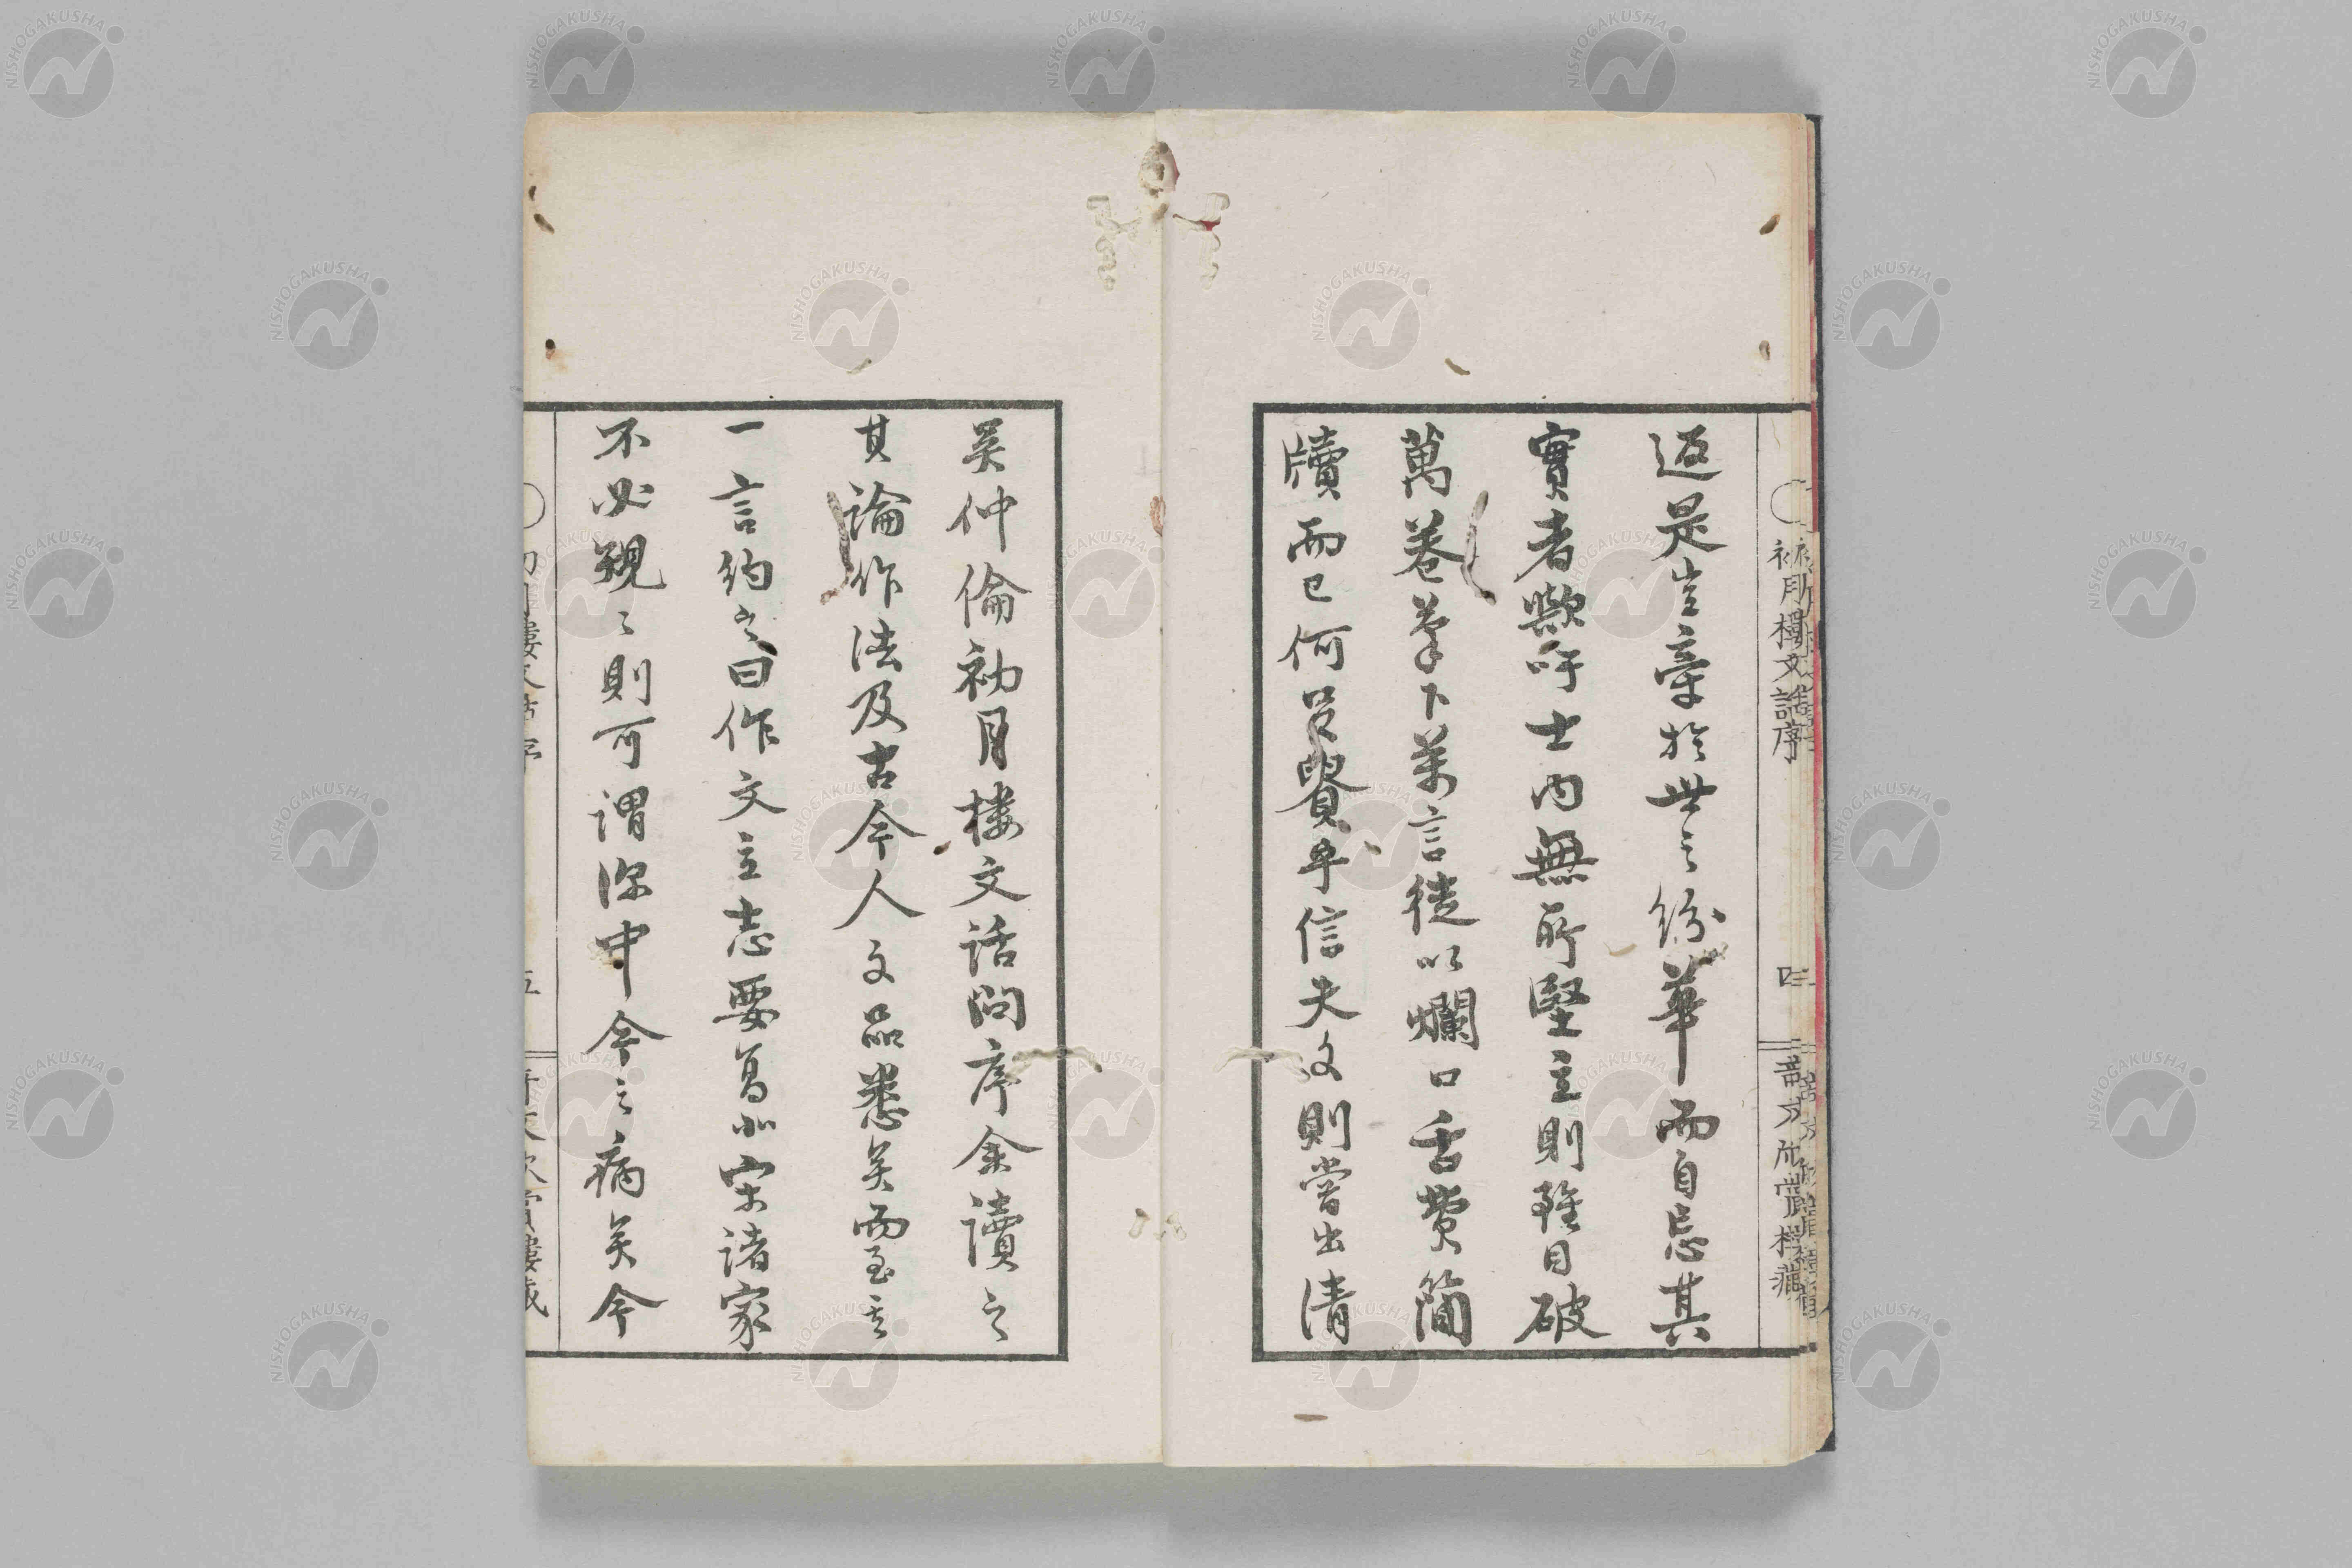 返是豈牽於世之紛華而自忘其
實者歟吁士內無所堅主則雖目破
萬卷筆下萬言徒以爛口舌費簡
牘而已何足貴乎信夫文則嘗出清
吳仲倫初月樓文話問序余讀之
其論作法及古今人文品悉矣而至其
一言約之曰作文立志要高北宋諸家
不必觀〻則可謂深中今之病矣今
初月樓文話序
四
五
NISHOGAKUSHA